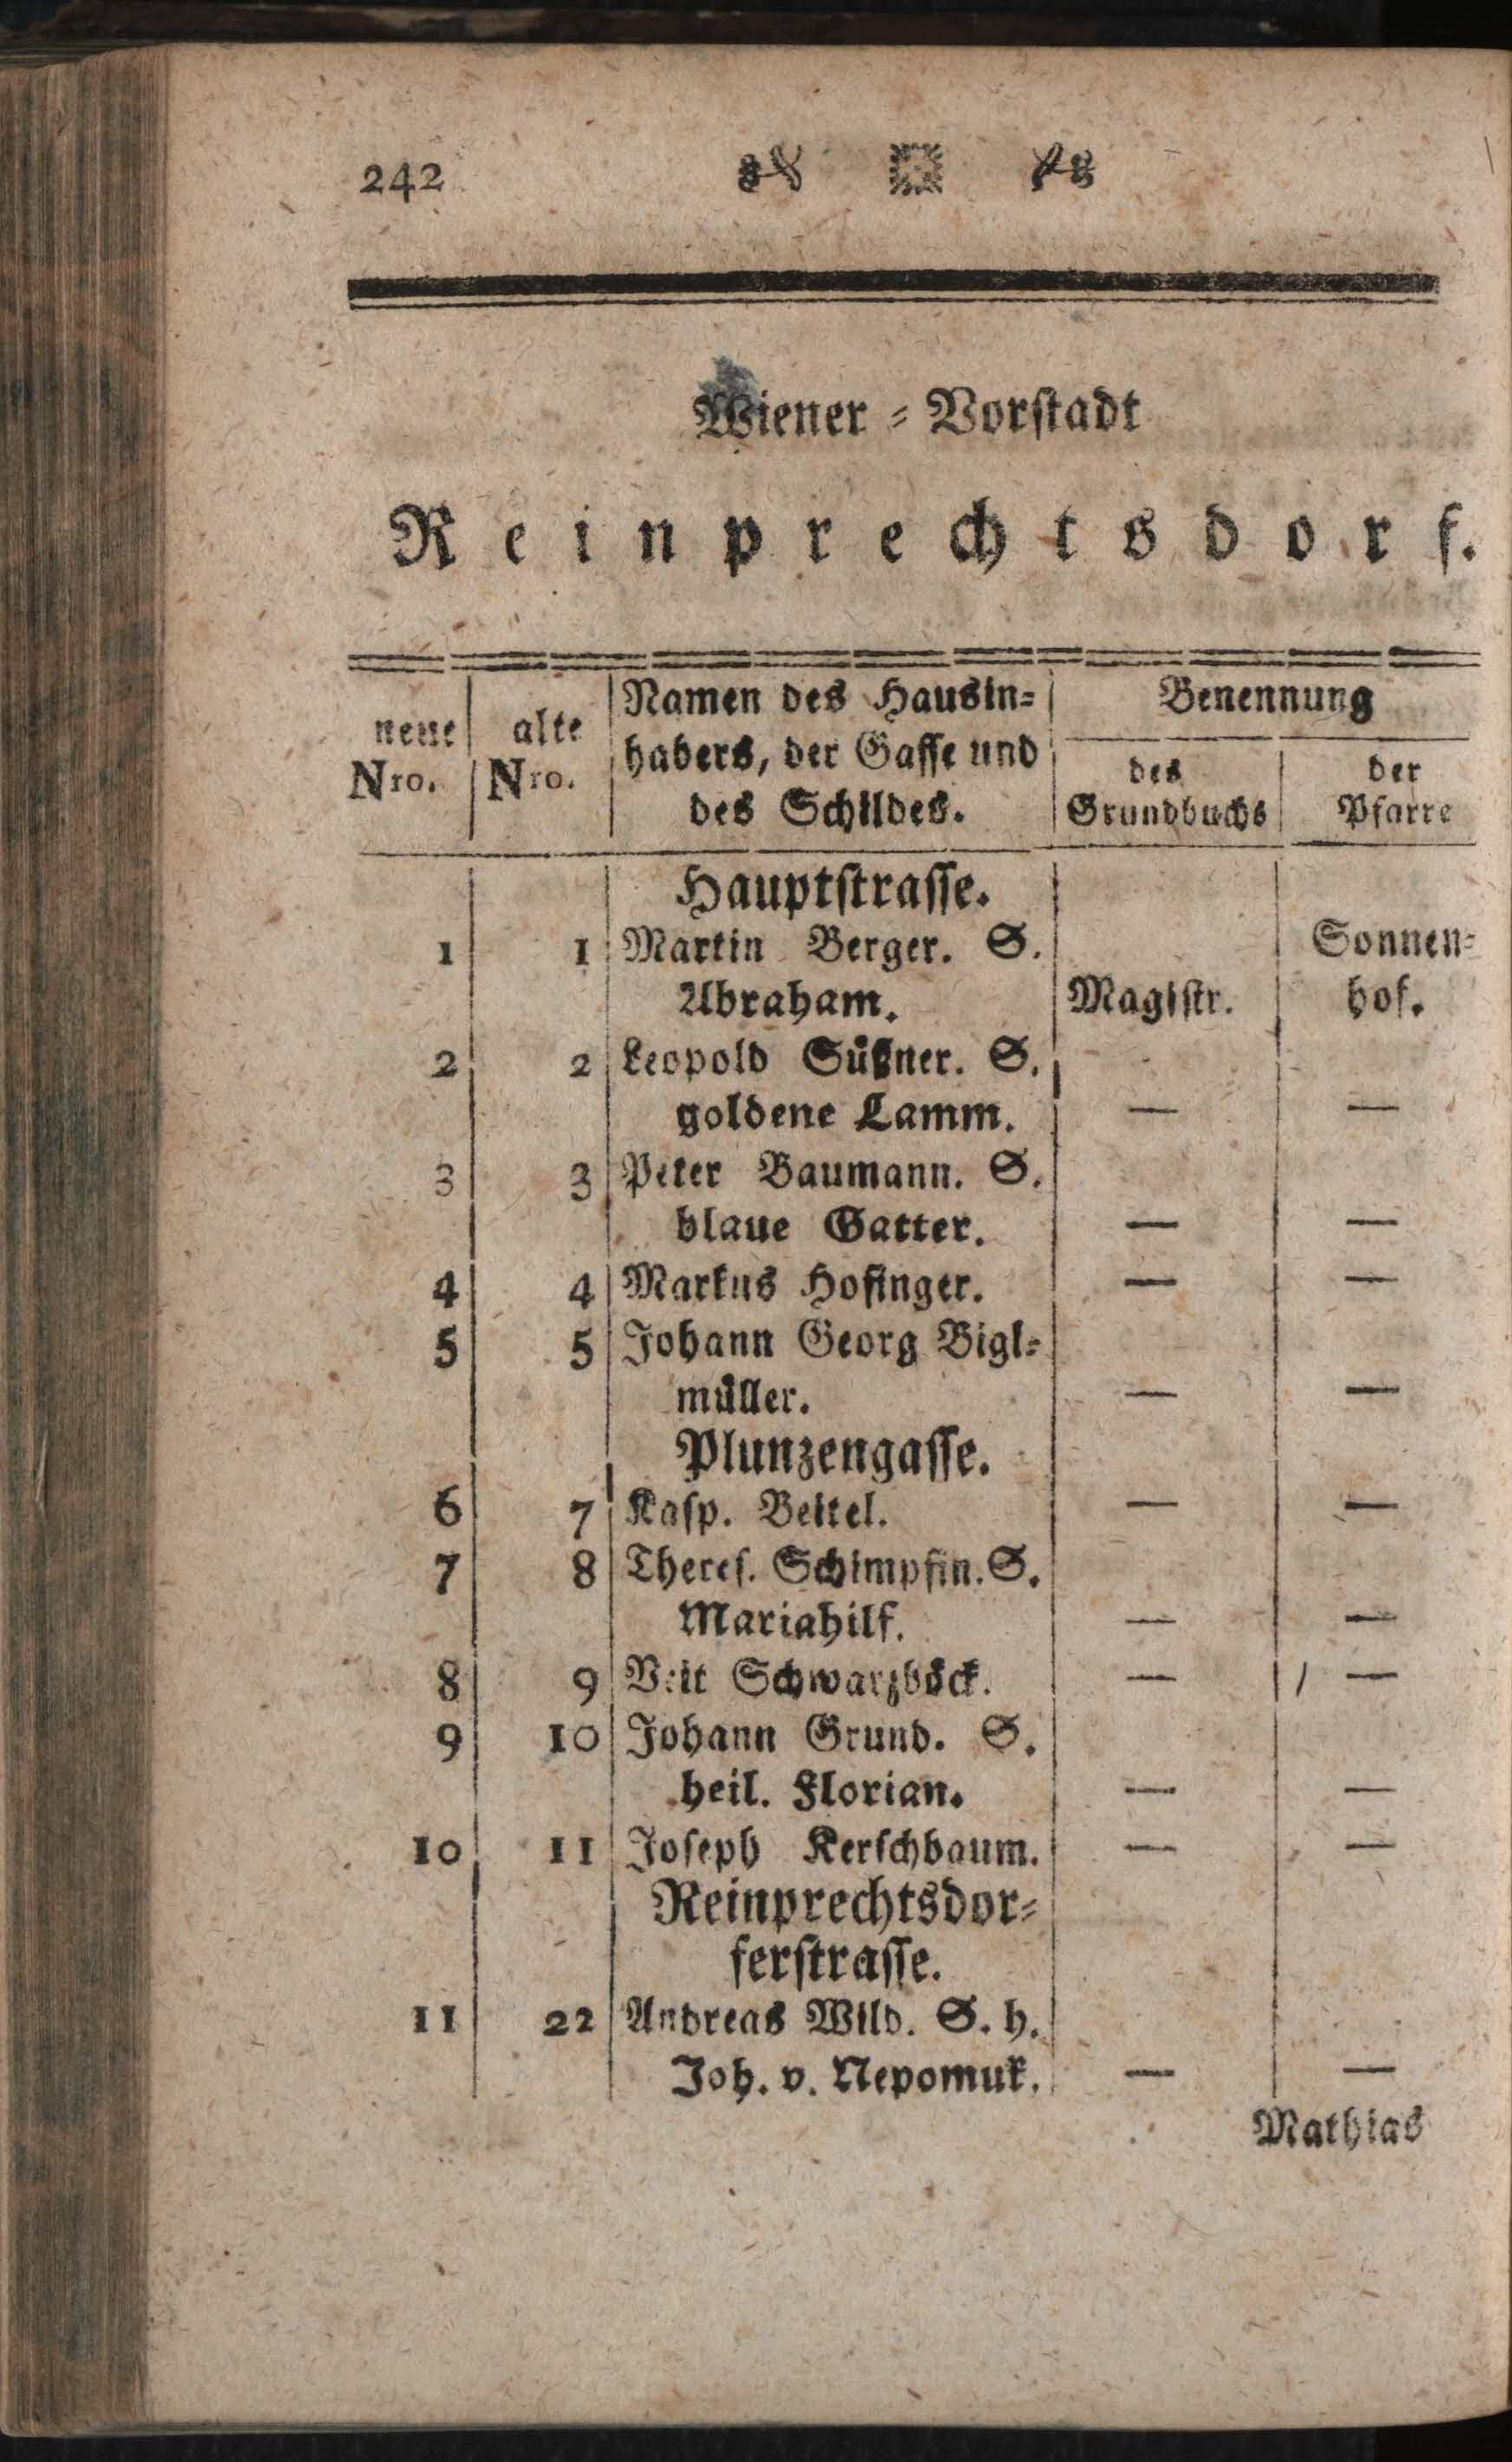 242
Wiener = Vorstadt
Reinprechtsdorf.
neue Nro. | alte Nro. | Namen des Hausin= | Benennung
habers, der Gasse und | des | der
des Schildes. | Grundbuchs | Pfarre
Hauptstrasse.
1 | 1 | Martin Berger. S. | | Sonnen=
Abraham. | Magistr. | hof.
2 | 2 | Leopold Süßner. S.
goldene Lamm. | — | —
3 | 3 | Peter Baumann. S.
blaue Gatter. | — | —
4 | 4 | Markus Hofinger. | — | —
5 | 5 | Johann Georg Bigl=
müller. | — | —
Plunzengasse.
6 | 7 | Kasp. Beitel. | — | —
7 | 8 | Theres. Schimpfin. S.
Mariahilf. | — | —
8 | 9 | Veit Schwarzböck. | — | —
9 | 10 | Johann Grund. S.
heil. Florian. | — | —
10 | 11 | Joseph Kerschbaum. | — | —
Reinprechtsdor=
ferstrasse.
11 | 22 | Andreas Wild. S. h.
Joh. v. Nepomuk. | — | —
Mathias